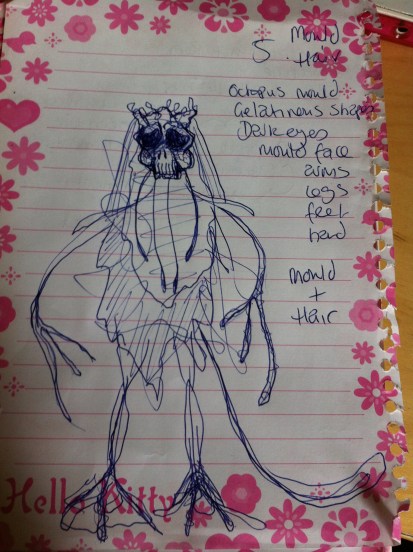 5 Mould
. Hair
Octopus mould
Gelatinous shapes
Dark eyes
mould face
arms
legs
feet
hand
mould
+
Hair
Hello Kitty